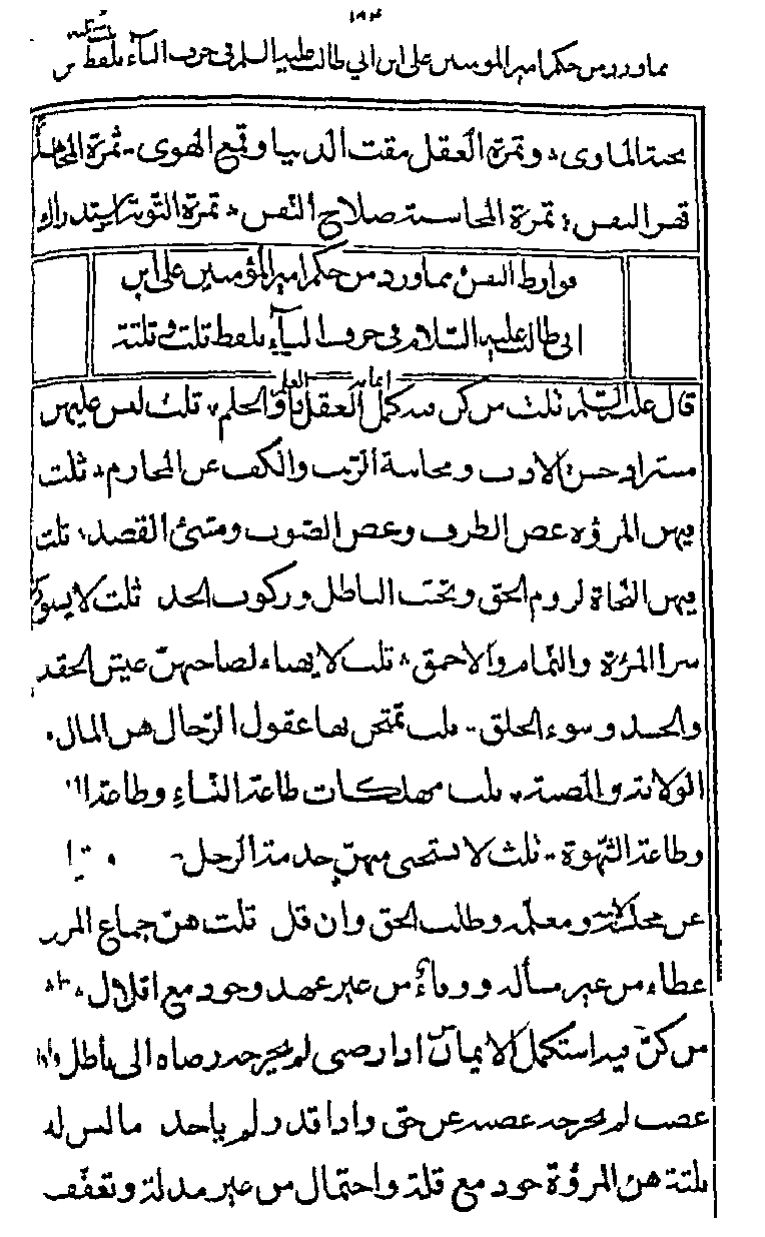 ١٨٤
مما ورد من حكم امير المومنين علي ابن ابي طالب عليه السلم في حرف الثاء بلفظ
محبة الماوى ثمرة العقل مقت الدنيا وقمع الهوى ثمرة المجاهدة
قهر النفس ثمرة المحاسبة صلاح النفس ثمرة التوبة استدراك
فوارط النفس مما ورد من حكم امير المؤمنين علي ابن
ابي طالب عليه السلام في حرف الثاء بلفظ ثلث وثلثة
قال عليه السلم ثلث من كن فيه كمل ايمانه العقل والحلم والعلم ثلث ليس عليهن
مستزاد حسن الادب ومجانبة الريب والكف عن المحارم ثلث
فيهن المروة غض الطرف وغض الصوت ومشي القصد ثلث
فيهن النجاة لزوم الحق وتجنب الباطل وركوب الجد ثلث لا يستودعن
سرا المرءة والنمام والاحمق ثلث لا يهناء لصاحبهن عيش الحقد
والحسد وسوء الخلق ثلث تمتحن بها عقول الرجال هن المال
الولاية والمصيبة ثلث مهلكات طاعة النساء وطاعة
وطاعة الشهوة ثلث لا يستحيى منهن خدمة الرجل
عن مجلسه لابيه ومعلمه وطلب الحق وان قل ثلث هن جماع
عطاء من غير مسألة ووفاء من غير عهد وجود مع اقلال
من كن فيه استكمل الايمان اذا رضى لم يخرجه رضاه الى باطل واذا
غضب لم يخرجه غضبه عن حق واذا قدر لم ياخذ ما ليس له
ثلثة هن المروة جود مع قلة واحتمال من غير مذلة وتعفف